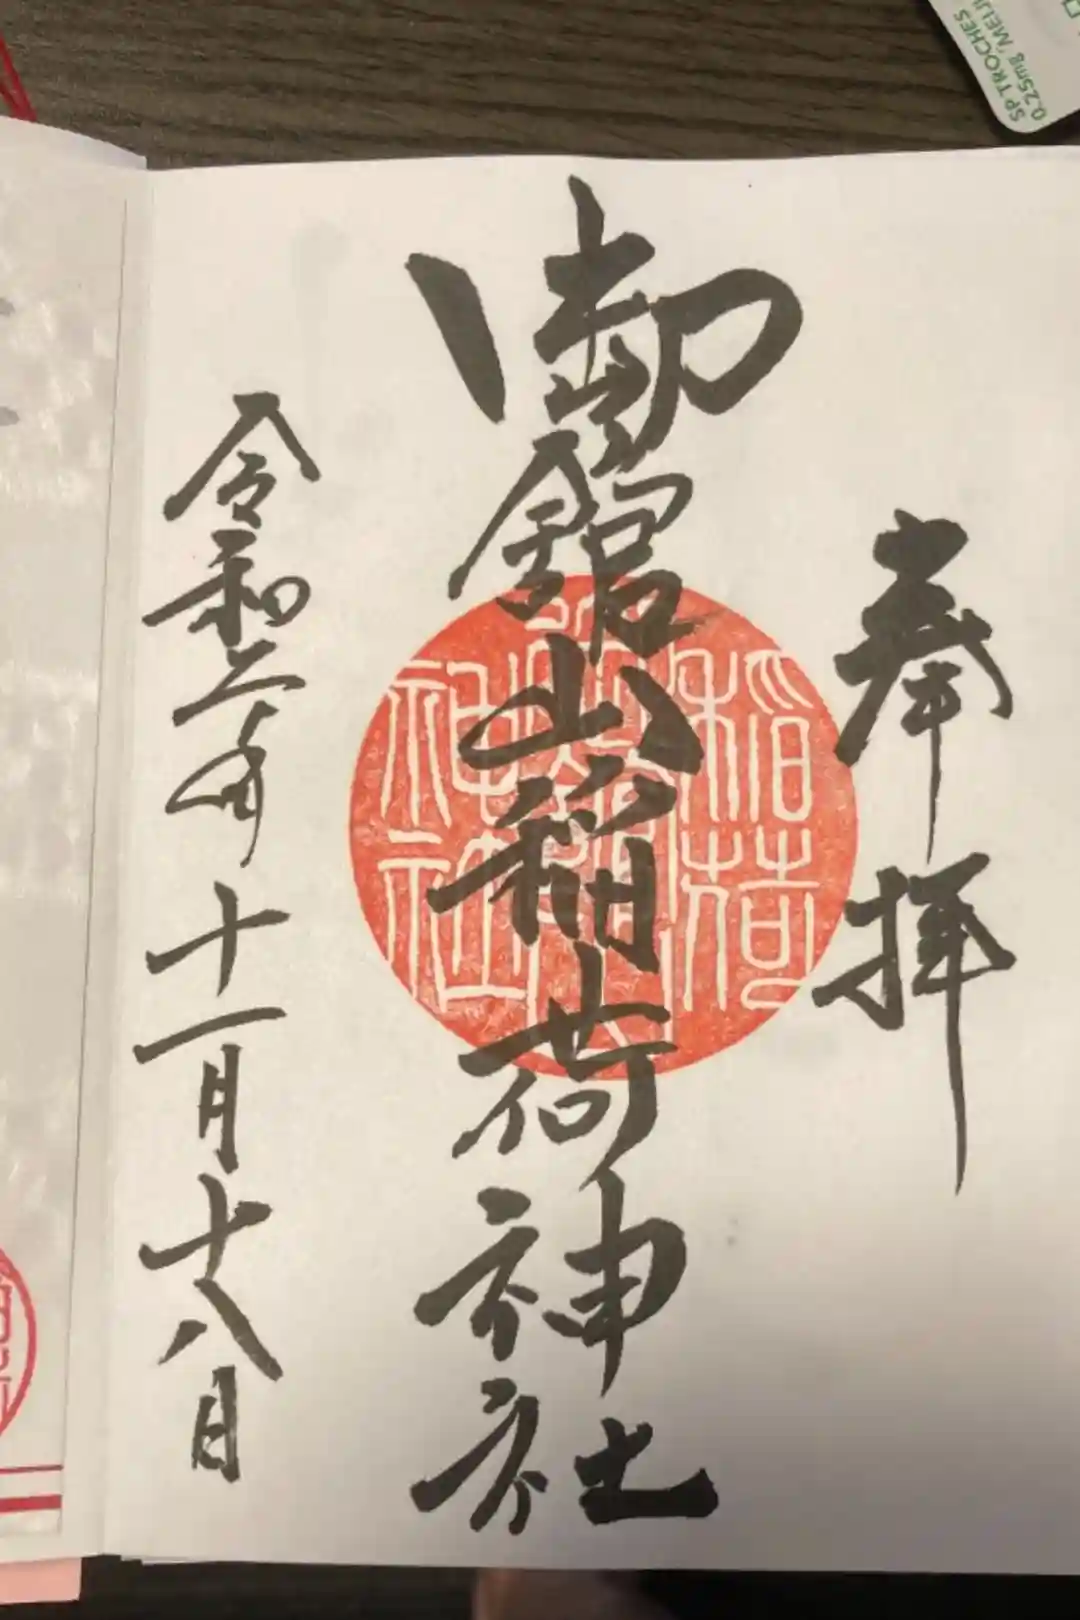 奉拝
御館山稲荷神社
令和二年十一月十八日
稲荷
神社
SP TROCHES
0.25mg「MEIJI